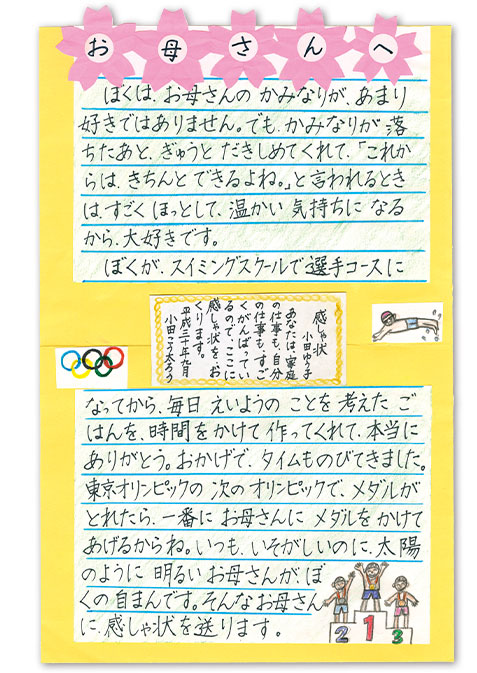 お母さんへ
ぼくは、お母さんの かみなりが、あまり
好きではありません。でも、かみなりが 落
ちたあと、ぎゅうと だきしめてくれて、「これか
らは、きちんと できるよね。」と 言われるとき
は、すごく ほっとして、温かい 気持ちに なる
から、大好きです。
ぼくが、スイミングスクールで 選手コースに
感しゃ状
小田ゆう子
あなたは、家庭
の仕事も、自分
の仕事も、すご
くがんばってい
るので、ここに
感しゃ状を、お
くります。
平成三十年九月
小田こう太ろう
なってから、毎日 えいようの ことを 考えた ご
はんを、時間を かけて 作ってくれて、本当に
ありがとう。おかげで、タイムも のびてきました。
東京オリンピックの 次の オリンピックで、メダルが
とれたら、一番に お母さんに メダルを かけて
あげるからね。いつも、いそがしいのに、太陽
のように 明るい お母さんが、ぼ
くの 自まんです。そんなお母さん
に、感しゃ状を 送ります。
2 1 3